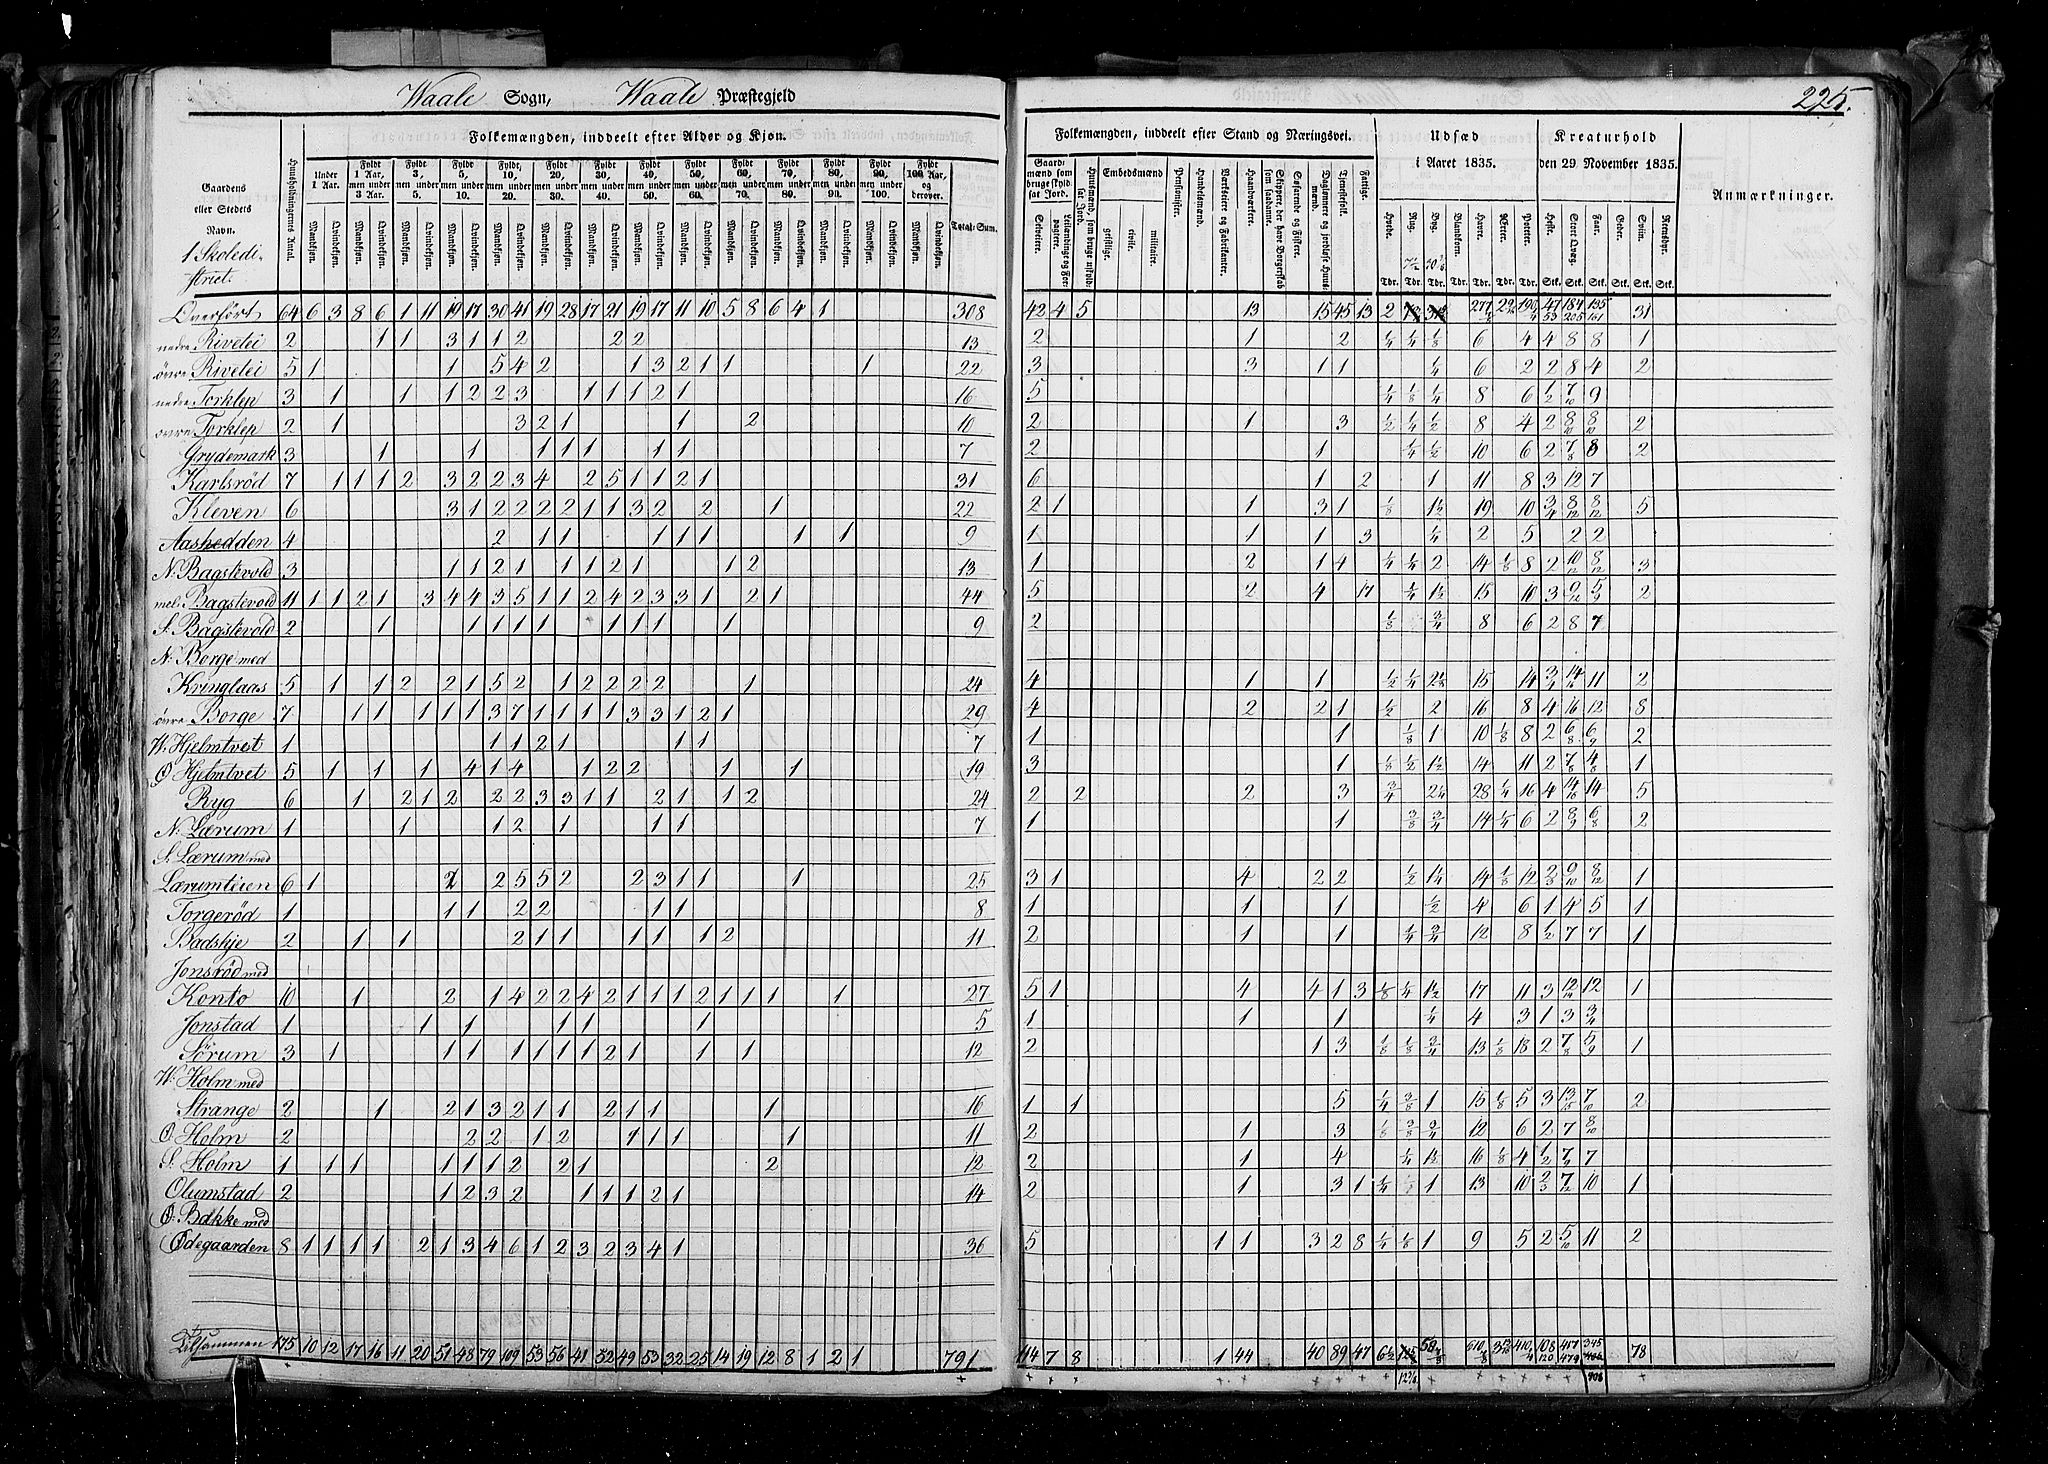 Waale Sogn, Waale Præstegjeld
225.
Folkemængden, inddeelt efter Alder og Kjøn.
Folkemængden, inddeelt efter Stand og Næringsvei.
Udsæd i Aaret 1835.
Kreaturhold den 29 November 1835.
Anmærkninger.
Gaardens eller Stedets Navn.
1 Skoledistrict.
Huusholdningernes Antal.
Under 1 Aar.
Fyldt 1 Aar, men under 3 Aar.
Fyldt 3, men under 5.
Fyldt 5, men under 10.
Fyldt 10, men under 20.
Fyldt 20, men under 30.
Fyldt 30, men under 40.
Fyldt 40, men under 50.
Fyldt 50, men under 60.
Fyldt 60, men under 70.
Fyldt 70, men under 80.
Fyldt 80, men under 90.
Fyldt 90, men under 100.
Fyldt 100 Aar, og derover.
Mandkjøn. Qvindekjøn.
Total-Sum.
Gaardmænd som bruge skyldsat Jord.
Selveiere.
Leilændinge og Forpagtere.
Huusmænd, som bruge uskyldsat Jord.
Embedsmænd
geistlige. civile. militaire.
Pensionister.
Handelsmænd.
Værkseiere og Fabrikanter.
Haandværkere.
Skippere, der have Borgerskab som saadanne.
Søfarende og Fiskere.
Daglønnere og jordløse Huusmænd.
Tjenestefolk.
Fattige.
Hvede. Rug. Byg. Blandkorn. Havre. Erter. Poteter. Heste. Stort Qvæg. Faar. Geder. Sviin. Rensdyr.
Tdr. Tdr. Tdr. Tdr. Tdr. Tdr. Tdr. Stk. Stk. Stk. Stk. Stk. Stk.
Overført 64 6 3 8 6 1 11 19 17 30 41 19 28 17 21 19 17 11 10 5 8 6 4 1 308 42 4 5 13 15 45 13 2 31
nedre Rivelei 2 1 1 3 1 1 2 2 2 13 2 1 2 1/4 1/4 1/8 6 4 4 8 8 1
øvre Rivelei 5 1 1 5 4 2 1 3 2 1 1 1 22 3 3 1 1 1/4 6 2 2 8 4 2
nedre Torklep 3 1 1 1 2 2 3 1 1 1 2 1 16 5 1/4 1/8 1/4 8 6 9
øvre Torklep 2 1 3 2 1 1 2 10 2 1 3 1/2 1/4 1/2 8 4 2 8/10 8/10 2
Grydemark 3 1 1 1 1 1 1 1 7 2 1 1/4 1/2 10 6 2 7/8 8 2
Karlsrød 7 1 1 1 2 3 2 2 3 4 2 5 1 1 2 1 31 6 1 2 1 11 8 3 12 7
Kleven 6 3 1 2 2 2 2 1 1 3 2 2 1 22 2 1 1 3 1 1/8 1 1/2 19 10 3/4 8/12 8/12 5
Aashedden 4 2 1 1 1 1 1 1 1 9 1 1 1 3 1/4 2 5 2 2
N. Bagstevold 3 1 1 2 1 1 1 2 1 1 2 13 1 2 1 4 1/4 1/2 2 14 1/8 8 2 10/12 8/12 3
mel. Bagstevold 11 1 1 2 1 3 4 4 3 5 1 1 2 4 2 3 3 1 2 1 44 5 2 4 17 1/4 1 1/2 15 10 3 9/12 5/9 2
S. Bagstevold 2 1 1 1 1 1 1 1 1 1 9 2 1/8 3/4 8 6 2 8 7
N. Borge med
Kringlaas 5 1 1 2 2 1 5 2 1 2 2 2 2 1 24 4 1 1 1/2 1/4 15 14 3/4 11 2
øvre Borge 7 1 1 1 1 1 3 7 1 1 1 1 3 3 1 2 1 29 4 2 2 1 1/2 2 16 8 4 16 12 8
W. Hjelmtvet 1 1 1 2 1 1 1 7 1 1 1/8 1 10 1/8 8 2 6/8 6/9 2
Ø. Hjelmtvet 5 1 1 1 4 1 4 1 2 2 1 1 19 3 1 1/8 1/2 1 1/2 14 11 2 7/8 4/8 1
Ryg 6 1 2 1 2 2 2 3 3 1 1 2 1 1 2 24 2 2 2 3 3/4 2 1/4 28 1/4 16 4 14/16 14 5
N. Lærum 1 1 1 2 1 1 1 7 1 1 3/8 3/4 14 1/4 6 2 8/9 6/8 2
S. Lærum med
Lærumteien 6 1 2 5 5 2 2 3 1 1 1 25 3 1 4 2 2 1/2 14 1/8 12 2/3 9/10 8/12 1
Torgerød 1 1 1 2 2 1 1 8 1 1 1 1/2 4 6 1 4 5 1
Badskje 2 1 1 2 1 1 1 1 1 2 11 2 1 1 1/4 3/4 12 8 1/2 7 7 1
Jonsrød med
Konto 10 1 2 1 4 2 2 4 2 1 1 1 2 1 1 1 1 27 5 1 4 4 1 3 1/8 1/4 1 1/2 17 11 3 12/14 12 1
Jonstad 1 1 1 1 1 1 5 1 1 1 1/4 4 3 1 3 3/4
Sørum 3 1 1 1 1 1 1 1 2 1 1 1 12 2 1 3 1/8 1/8 3/4 13 1/8 18 2 7/8 5/9 1
W. Holm med
Strange 2 1 2 1 3 2 1 1 2 1 1 1 16 1 1 5 1/4 3/8 1 15 1/8 5 3 13/15 7/10 2
Ø. Holm 2 2 2 1 2 1 1 1 1 11 2 1 3 1/8 3/8 3/4 12 6 2 7 8/10
S. Holm 1 1 1 1 1 1 2 2 1 2 12 2 1 4 1/4 1 1/2 16 1/8 4 1/2 7
Olumstad 2 1 2 3 2 1 1 1 2 1 14 2 1 3 1 1/4 1 13 10 2/3 7/12 10 1
Ø. Bakke med
Ødegaarden 8 1 1 1 1 2 1 3 4 6 1 2 3 2 3 4 1 36 5 1 1 3 2 8 1/4 1/8 1 9 5 2 5/10 11 2
Tilsammen 175 10 12 17 16 11 20 51 48 79 109 53 56 41 52 49 53 32 25 14 19 12 8 1 2 1 791 114 7 8 1 44 40 89 47 6 1/2 108/120 417/479 345 78